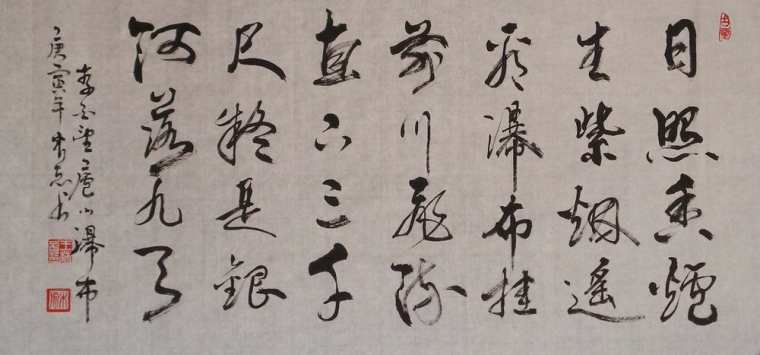 日照香爐
生紫烟遥
看瀑布挂
前川飛流
直下三千
尺疑是銀
河落九天
李白望廬山瀑布
庚寅年